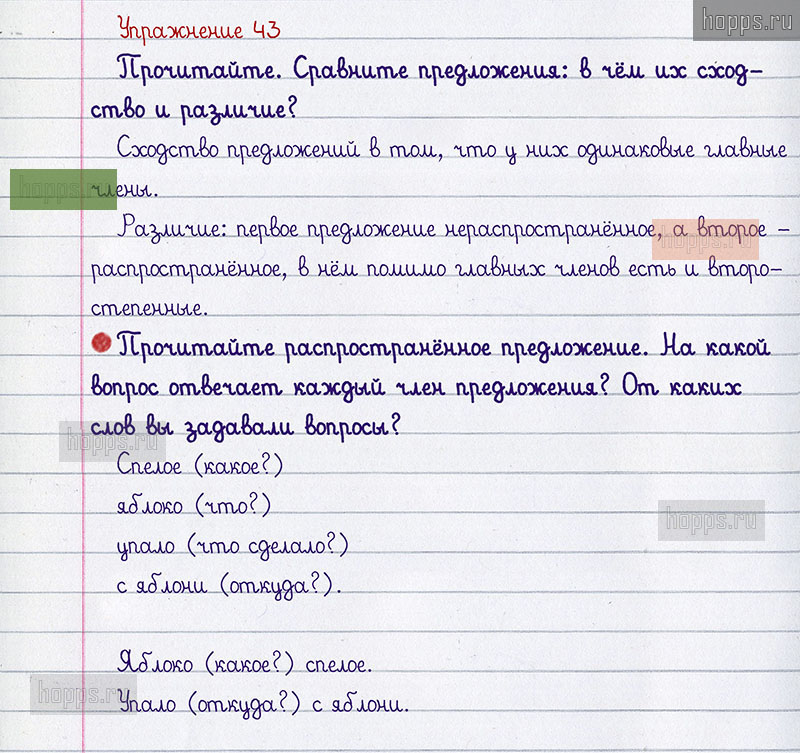 hopps.ru
Упражнение 43
Прочитайте. Сравните предложения: в чём их сход-
ство и различие?
Сходство предложений в том, что у них одинаковые главные
hopps.ru
члены.
Различие: первое предложение нераспространённое, а второе –
hopps.ru
распространённое, в нём помимо главных членов есть и второ-
степенные.
Прочитайте распространённое предложение. На какой
вопрос отвечает каждый член предложения? От каких
слов вы задавали вопросы?
hopps.ru
Спелое (какое?)
яблоко (что?)
hopps.ru
упало (что сделало?)
с яблони (откуда?).
Яблоко (какое?) спелое.
hopps.ru
Упало (откуда?) с яблони.